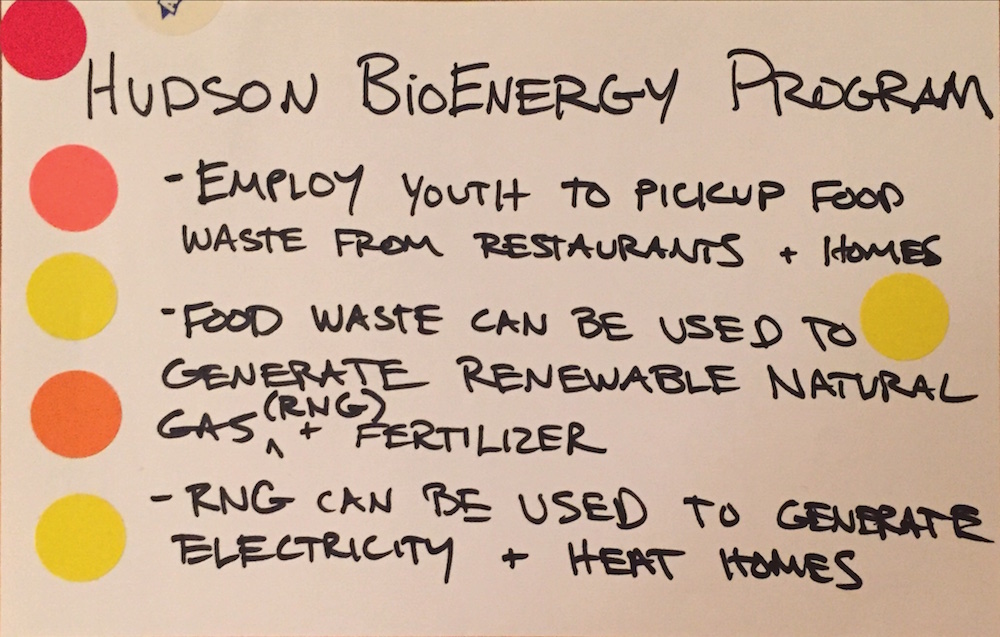 HUDSON BIOENERGY PROGRAM
- EMPLOY YOUTH TO PICKUP FOOD
WASTE FROM RESTAURANTS + HOMES
- FOOD WASTE CAN BE USED TO
GENERATE RENEWABLE NATURAL
GAS (RNG) + FERTILIZER
- RNG CAN BE USED TO GENERATE
ELECTRICITY + HEAT HOMES